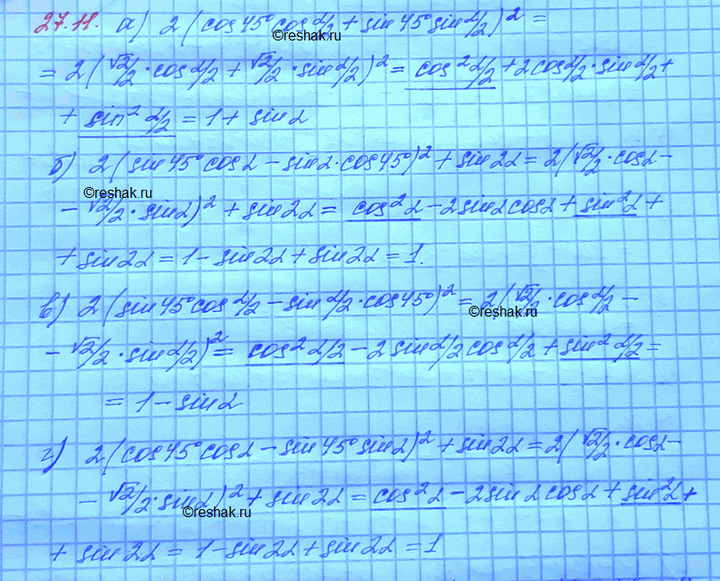 27.11. а) 2(cos45°cosα/2 + sin45°sinα/2)² =
reshak.ru
= 2(√2/2·cosα/2 + √2/2·sinα/2)² = cos²α/2 + 2cosα/2·sinα/2 +
+ sin²α/2 = 1 + sinα
б) 2(sin45°cosα - sinα·cos45°)² + sin2α = 2(√2/2·cosα -
reshak.ru
- √2/2·sinα)² + sin2α = cos²α - 2sinαcosα + sin²α +
+ sin2α = 1 - sin2α + sin2α = 1.
в) 2(sin45°cosα/2 - sinα/2·cos45°)² = 2(√2/2·cosα/2 -
reshak.ru
- √2/2·sinα/2)² = cos²α/2 - 2sinα/2cosα/2 + sin²α/2 =
= 1 - sinα
г) 2(cos45°cosα - sin45°sinα)² + sin2α = 2(√2/2·cosα -
- √2/2·sinα)² + sin2α = cos²α - 2sinαcosα + sin²α +
reshak.ru
+ sin2α = 1 - sin2α + sin2α = 1